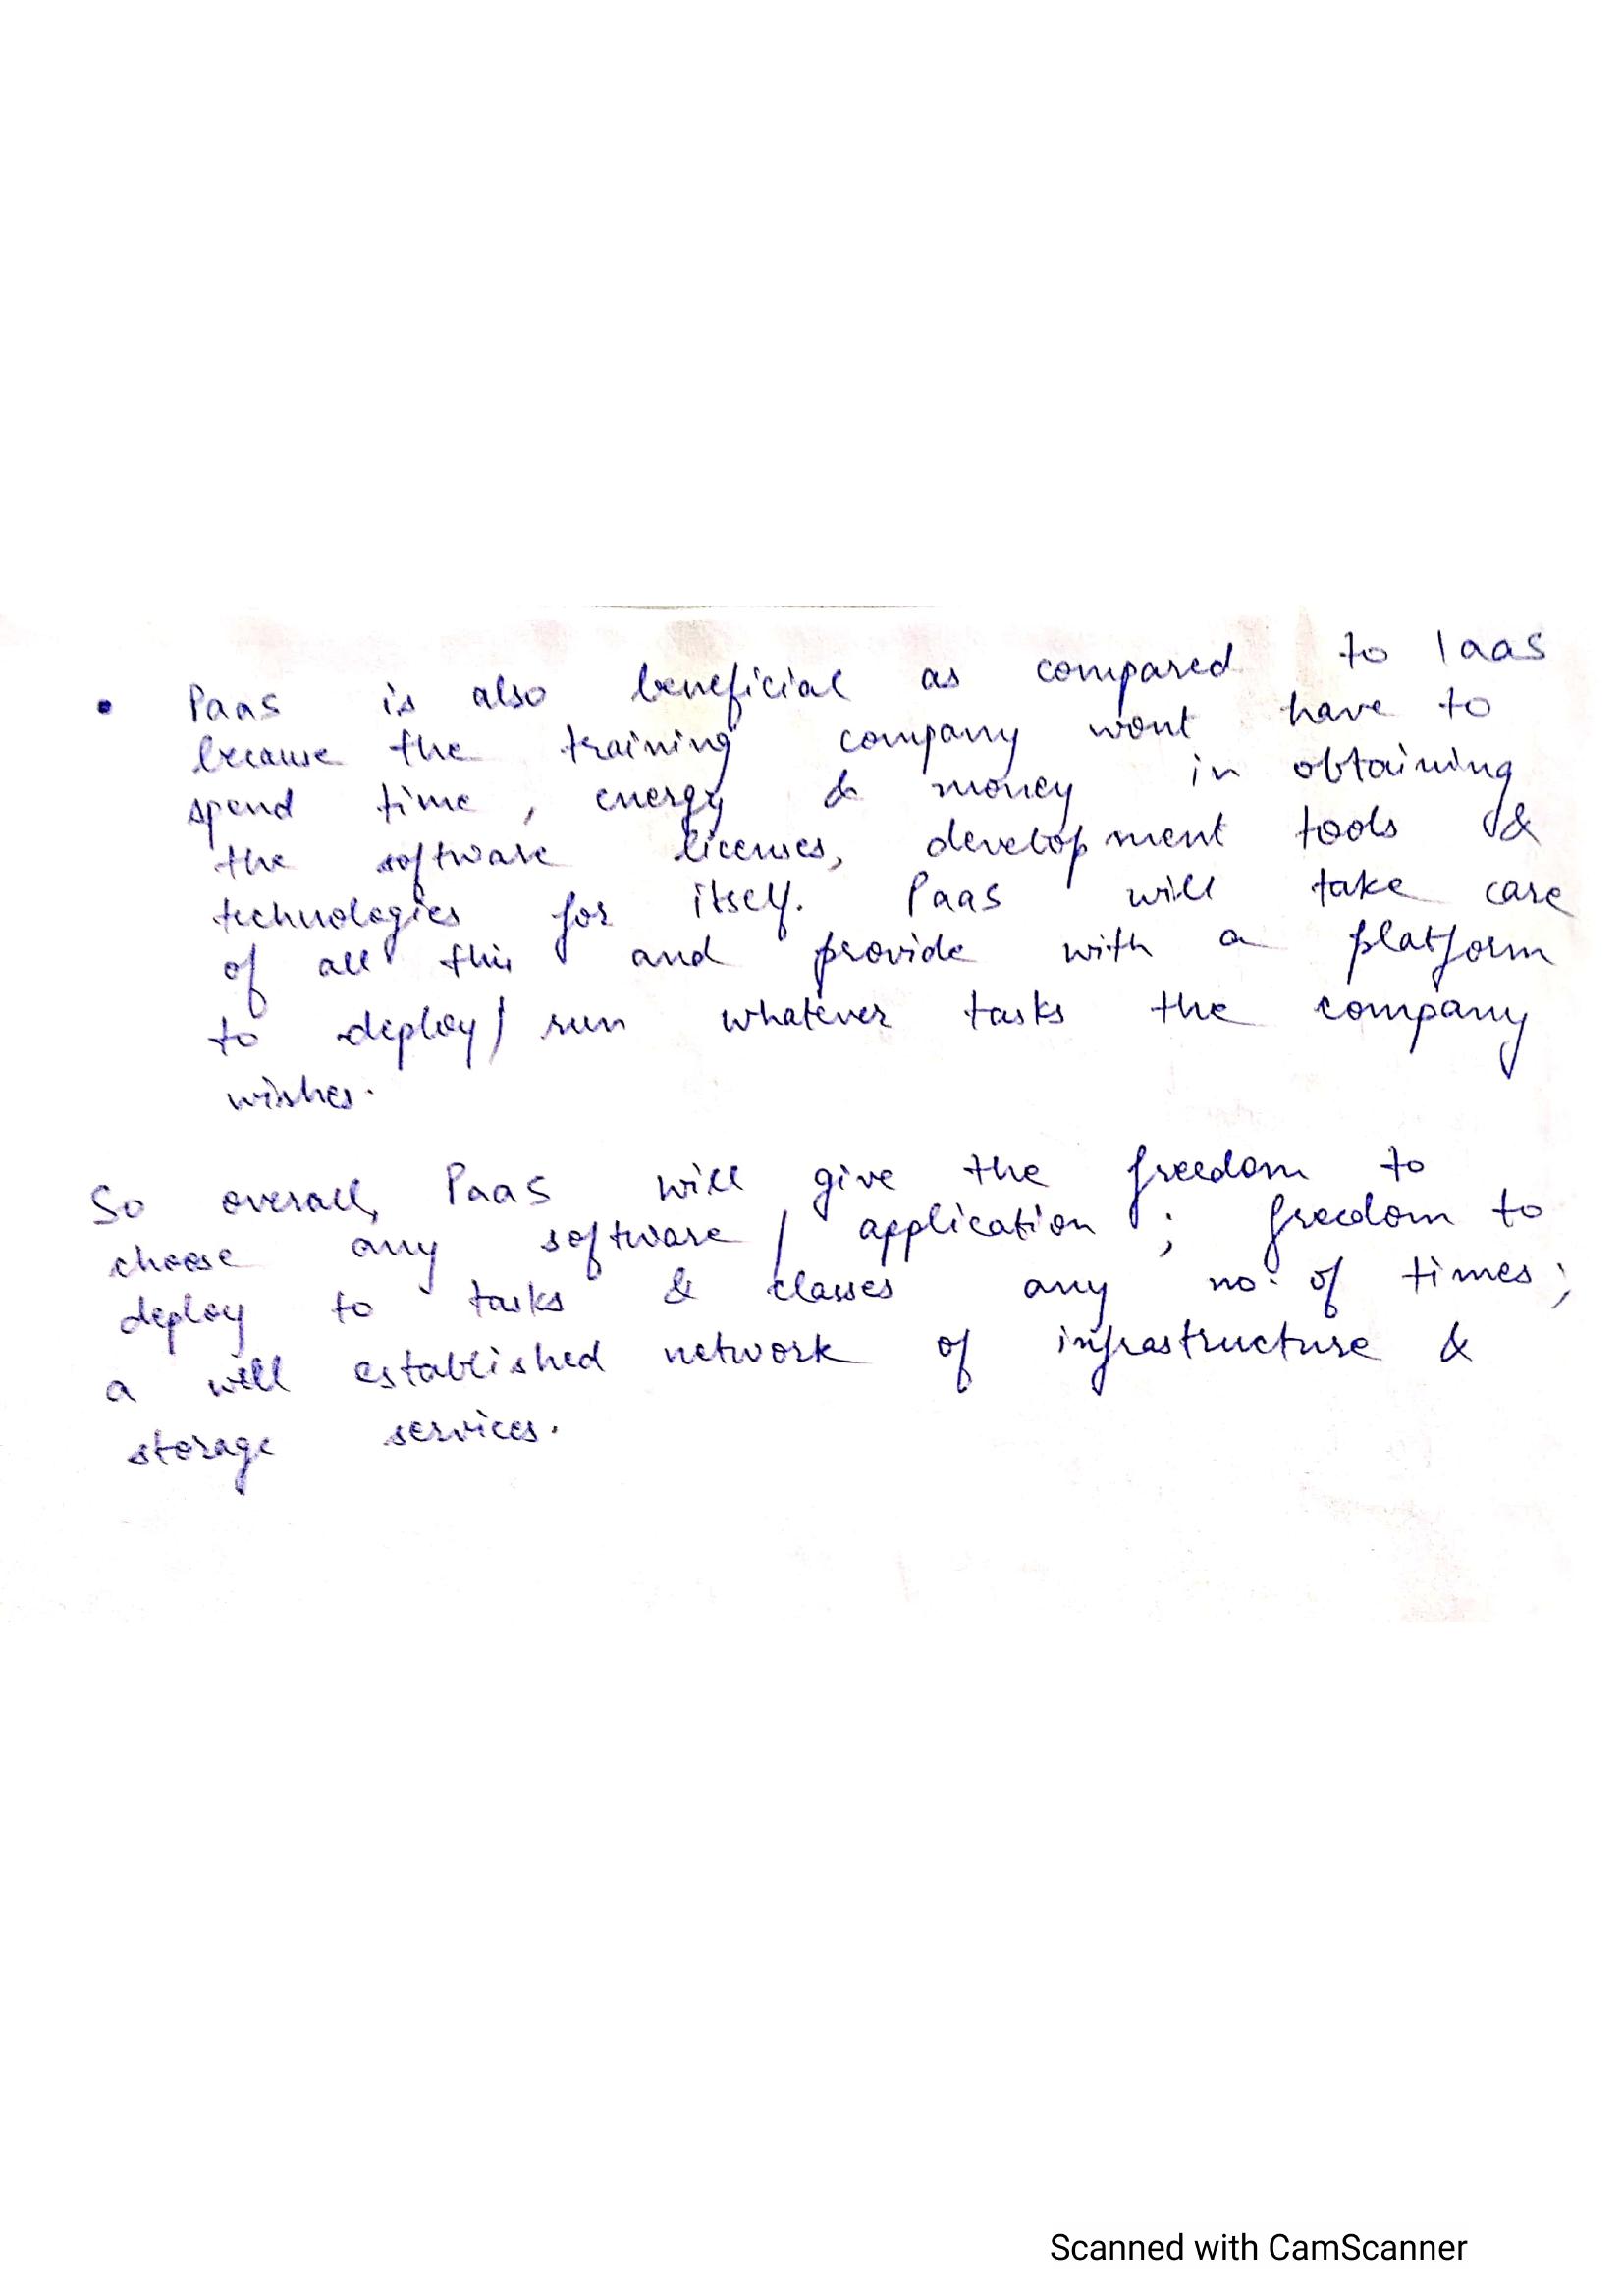 • PaaS is also beneficial as compared to IaaS
because the training company wont have to
spend time, energy & money in obtaining
the software licenses, development tools &
technologies for itself. PaaS will take care
of all this and provide with a platform
to deploy/run whatever tasks the company
wishes.
So overall, PaaS will give the freedom to
choose any software / application ; freedom to
deploy to tasks & classes any no. of times;
a well established network of infrastructure &
storage services.
Scanned with CamScanner